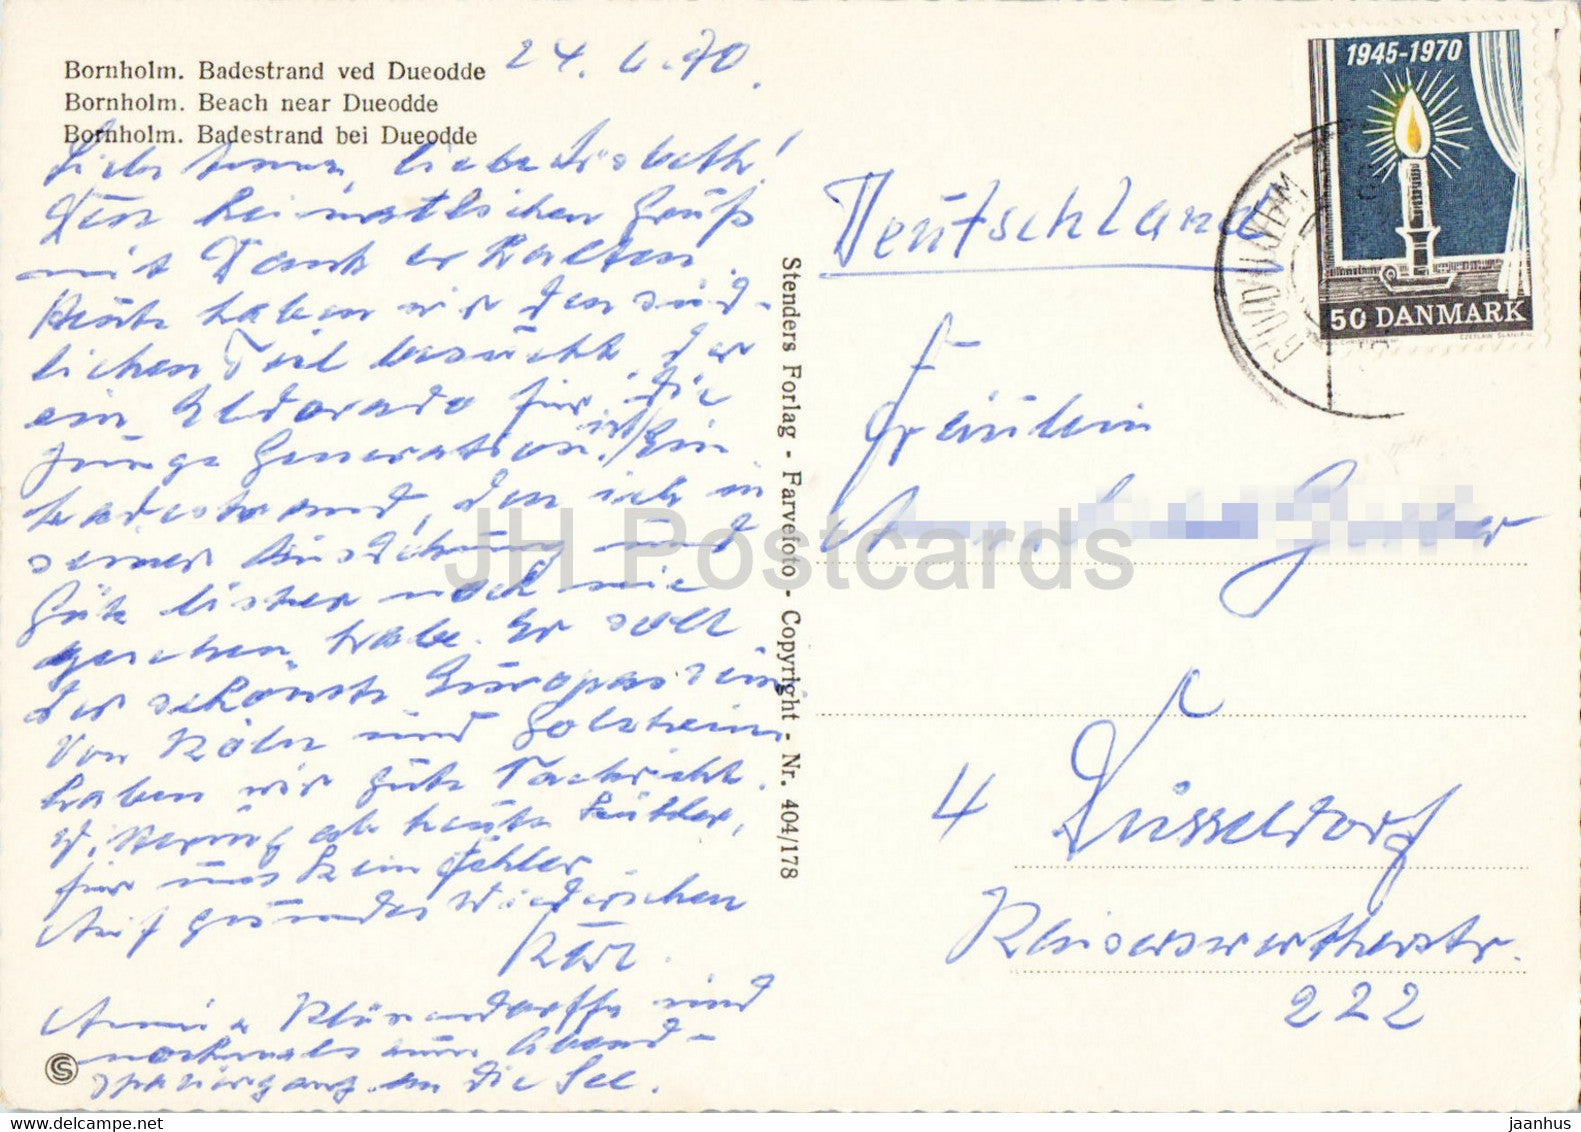 Bornholm. Badestrand ved Dueodde
Bornholm. Beach near Dueodde
Bornholm. Badestrand bei Dueodde
24. 6. 70.
Liebe Anna, liebe Lisbeth!
Den heimatlichen Gruß
mit Dank erhalten.
Heute haben wir den süd-
lichen Teil besucht. Der
ein Eldorado für die
junge Generation ist! Ein
Badestrand, den ich in
seiner Ausdehnung und
Güte bisher noch nie
gesehen habe. Er soll
der schönste Europas sein.
Von Köln und Holzheim
haben wir gute Nachricht.
ab heute
für uns kein Fehler
Auf gesundes Wiedersehen
Karl.
und
nochmals zum Abend-
spaziergang an die See.
S
Stenders Forlag - Farvefoto - Copyright - Nr. 404/178
1945-1970
50 DANMARK
Deutschland
Fräulein
4 Düsseldorf
Kaiserswertherstr.
222
JH Postcards
jaanhus